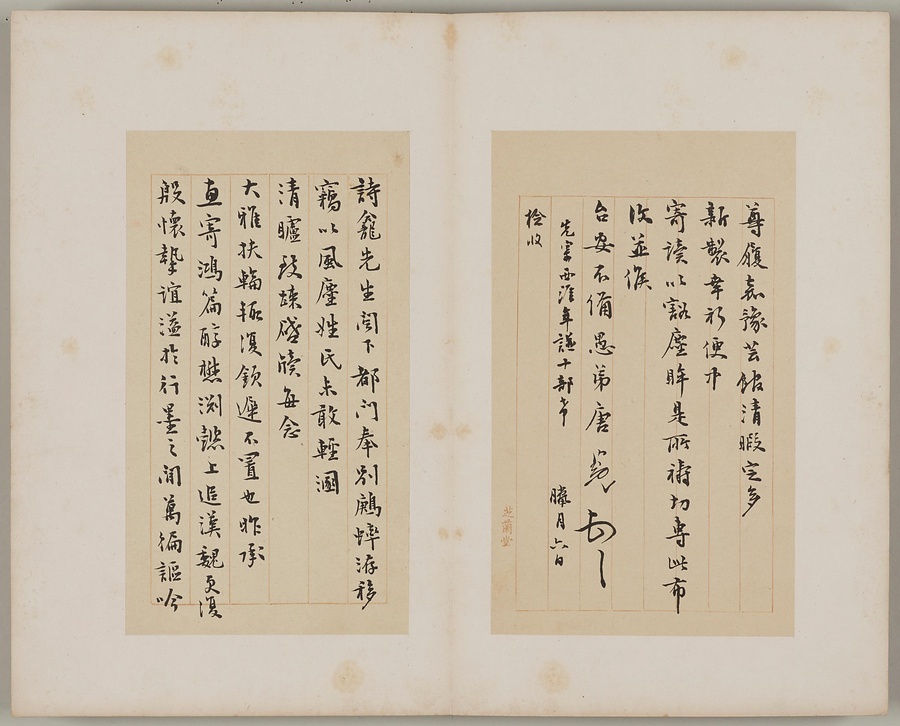 尊履嘉豫芸館清暇定多
新製幸祈便中
寄讀以豁塵眸是所禱切專此布
並候
台安不備愚弟唐 頓首
先 西 年 十部 臘月六日
檢收
芝蘭堂
詩龕先生閣下都门奉別 蟀游移
竊以風塵姓氏未敢輕溷
清矑致疎啓牘每念
大雅扶輪輒復欽遲不置也昨承
惠寄鴻篇醇懋渕懿上追漢魏更復
殷懷摯誼溢於行墨之间萬徧謳吟